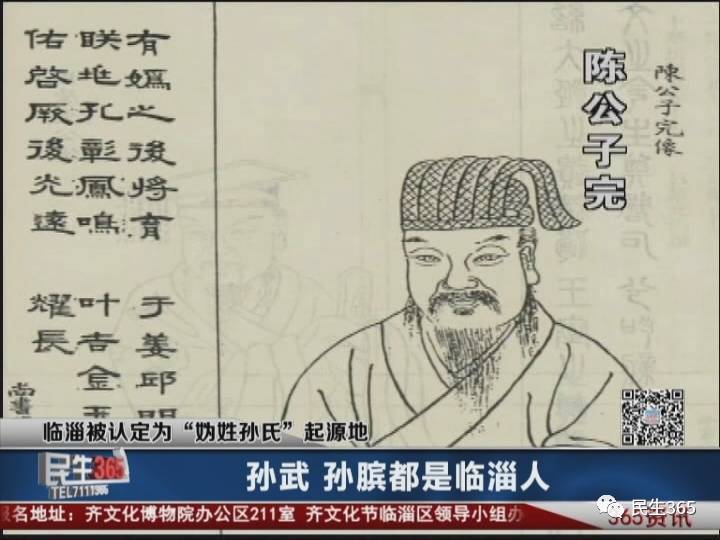 陳公子完像
陈公子完
有嬀之後將育 于姜邱
孔彰鳳鳴 叶吉金
佑啓厥後光遠 耀長
尚書
临淄被认定为“妫姓孙氏”起源地
民生365
TEL7111365
孙武 孙膑都是临淄人
民生365
名地址：齐文化博物院办公区211室 齐文化节临淄区领导小组办
365资讯